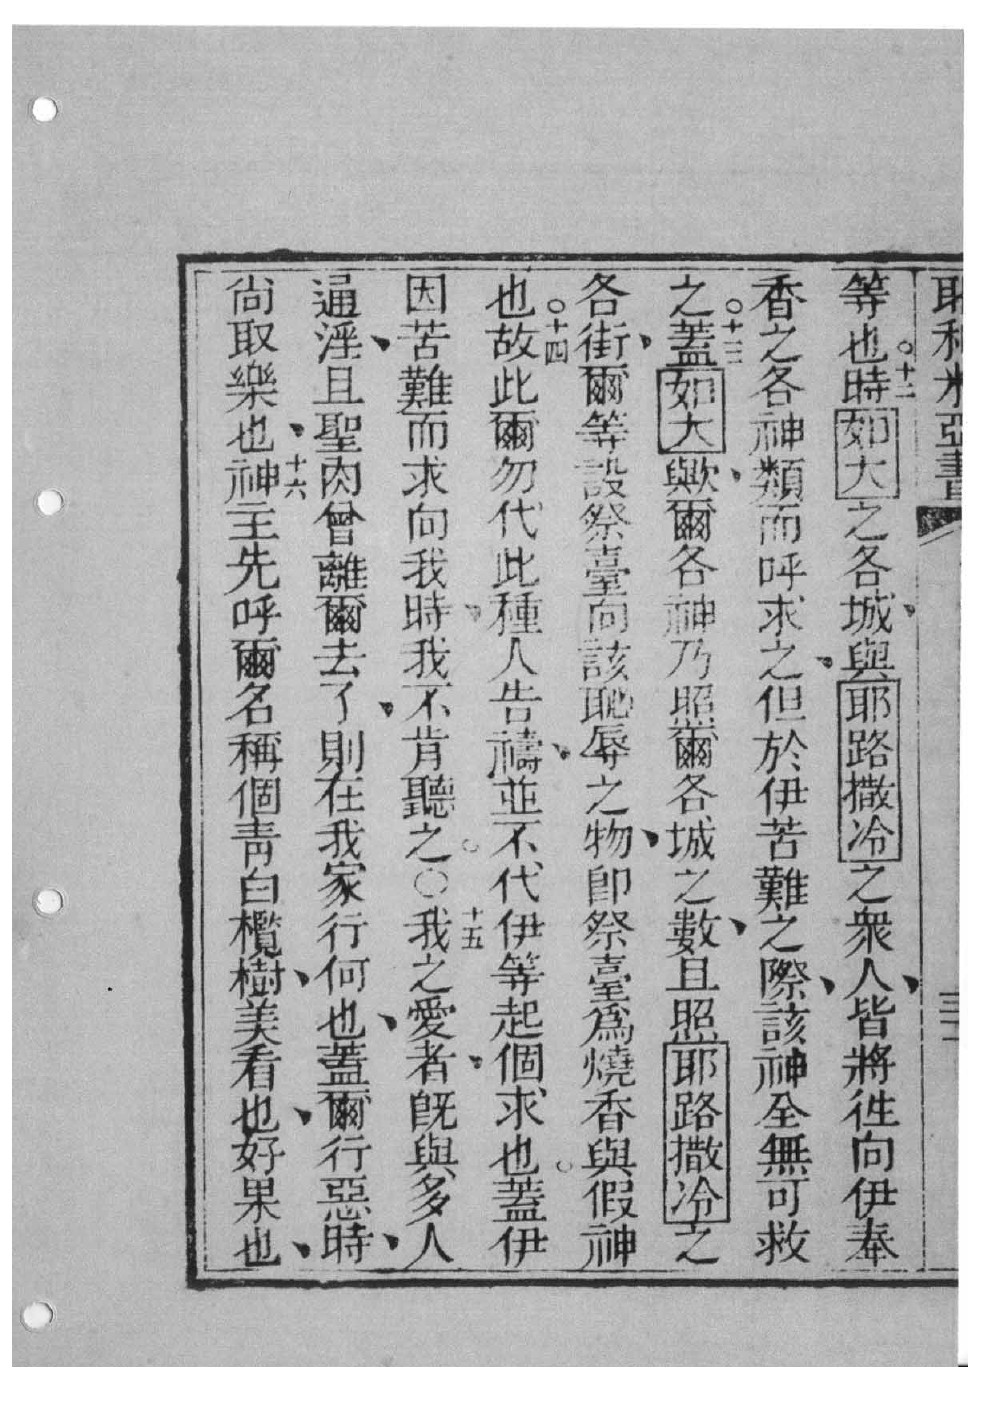 耶利米亞書
等也十二時如大之各城與耶路撒冷之衆人皆將徃向伊奉
香之各神類而呼求之但於伊苦難之際該神全無可救
之十三蓋如大歟爾各神乃照爾各城之數且照耶路撒冷之
各街爾等設祭臺向該恥辱之物卽祭臺爲燒香與假神
也十四故此爾勿代此種人告禱並不代伊等起個求也蓋伊
因苦難而求向我時我不肯聽之○十五我之愛者旣與多人
通淫且聖肉曾離爾去了則在我家行何也蓋爾行惡時
尚取樂也十六神主先呼爾名稱個青白欖樹美看也好果也